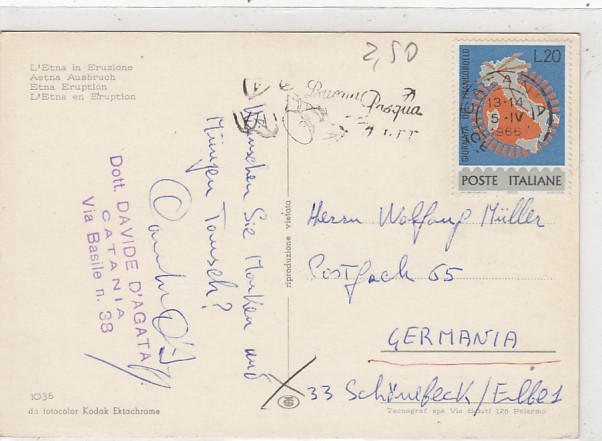 L'Etna in Eruzione
Aetna Ausbruch
Etna Eruption
L'Etna en Eruption
2,50
Pasqua
L.20
GIORNATA DEL FRANCOBOLLO
13-14
5-IV
1966
POSTE ITALIANE
Wünschen Sie Marken und
Münzen Tausch?
Dott. DAVIDE D'AGATA
CATANIA
Via Basile n. 38
riproduzione vietata
Herrn Wolfgang Müller
Postfach 65
GERMANIA
33 Schönebeck/Elbe 1
1036
da fotocolor Kodak Ektachrome
Tecnograf spa Via Bauti 128 Palermo